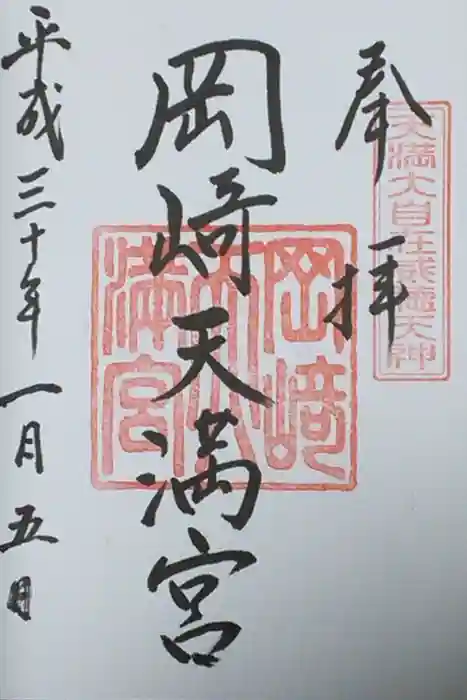 奉拝
天満大自在威徳天神
岡崎天満宮
岡﨑
天満宮
平成三十年一月五日